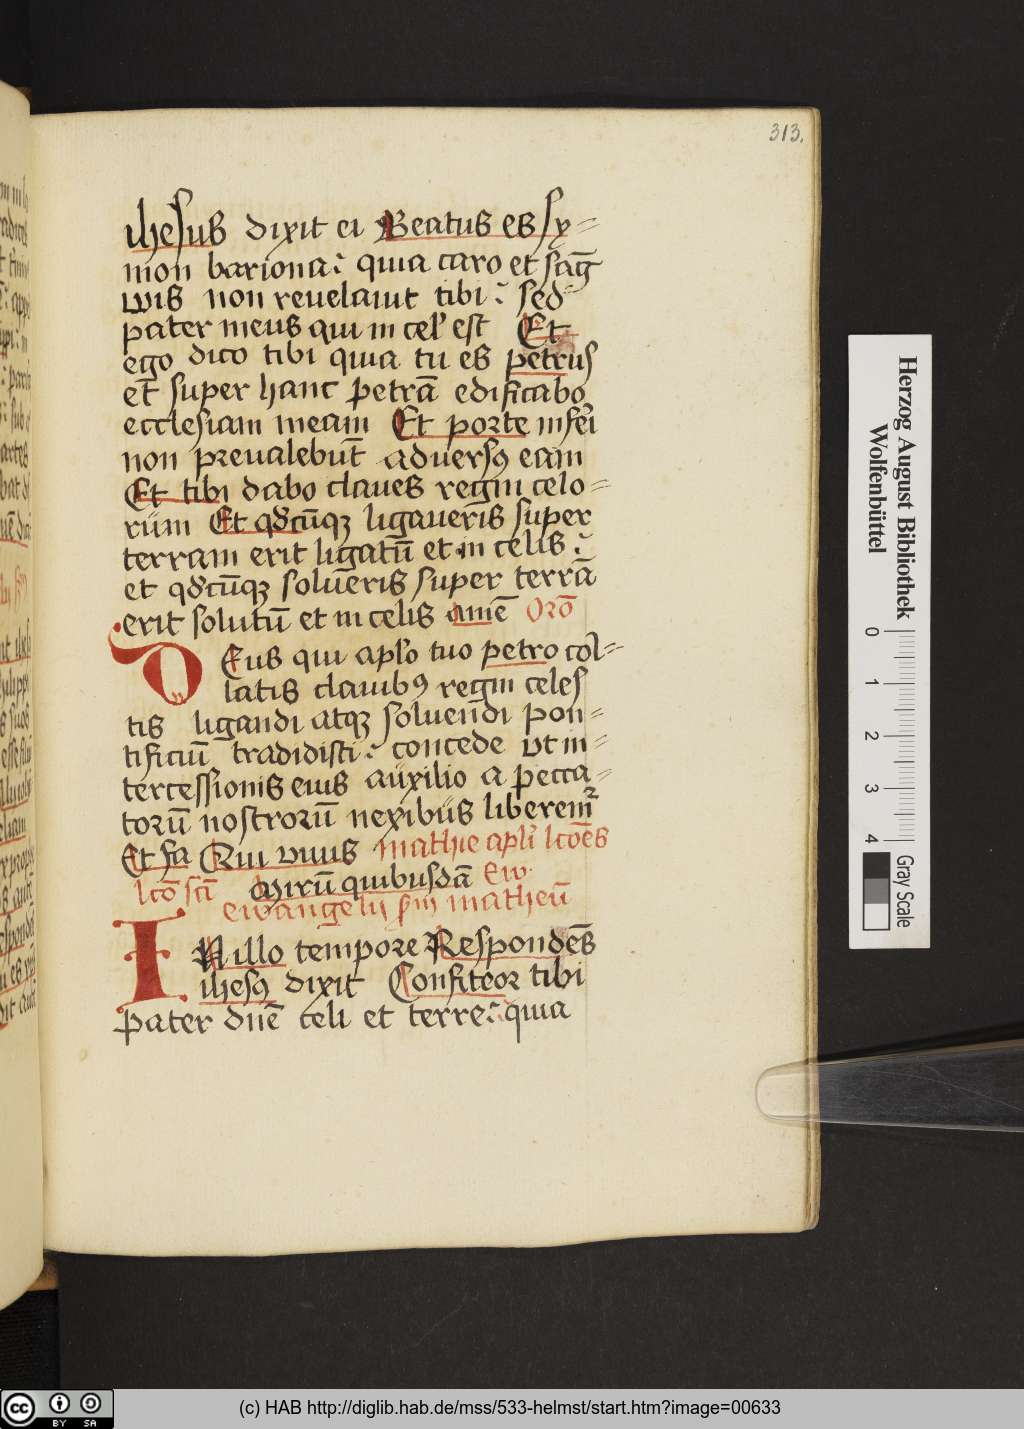 313.
ihesus dixit ei Beatus es sy=
mon bariona: quia caro et sāg
wis non reuelauit tibi: sed
pater meus qui in cel' est Et
ego dico tibi quia tu es petrus
et super hanc petrā edificabo
ecclesiam meam Et porte inferi
non preualebūt aduersꝯ eam
Et tibi dabo claues regni celo=
rum Et qd'cūqꝫ ligaueris super
terram erit ligatū et in celis:
et qd'cūqꝫ solueris super terrā
erit solutū et in celis amē Orō
Deus qui apl'o tuo petro col=
latis clauibꝯ regni celes
tis ligandi atqꝫ soluendi pon=
tificiū tradidisti: concede vt in=
tercessionis eius auxilio a pecca=
torū nostrorū nexibus liberem̄r
Et fa Qui viuis mathie apl'i lcōes
lcō scā virū quibusdā Ew
ewangelii sm̄ matheū
IN illo tempore Respondēs
ihesꝯ dixit Confiteor tibi
pater dn̄e celi et terre: quia
Herzog August Bibliothek
Wolfenbüttel
0 1 2 3 4
Gray Scale
cc BY SA
(c) HAB http://diglib.hab.de/mss/533-helmst/start.htm?image=00633